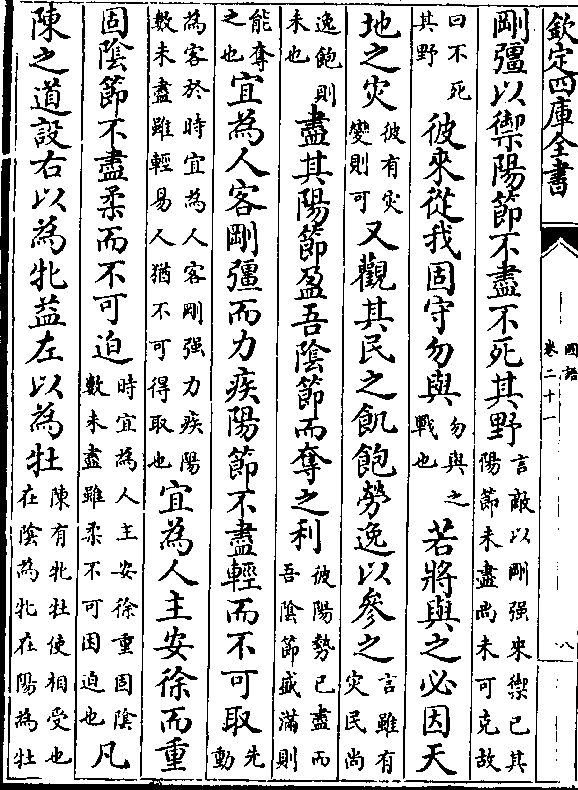 欽定四庫全書
國語
卷二十一
八
剛彊以禦陽節不盡不死其野言敵以剛强來禦已其陽節未盡尚未可克故
曰不死其野彼來從我固守勿與勿與之戰也若將與之必因天
地之灾彼有灾變則可又觀其民之飢飽勞逸以參之言雖有灾民尚
逸飽則未也盡其陽節盈吾陰節而奪之利彼陽勢已盡而吾陰節盛滿則
能奪之也宜為人客剛彊而力疾陽節不盡輕而不可取先動
為客於時宜為人客剛强力疾陽數未盡雖輕易人猶不可得取也宜為人主安徐而重
固陰節不盡柔而不可迫時宜為人主安徐重固陰數未盡雖柔不可困迫也凡
陳之道設右以為牝益左以為牡陳有牝牡使相受也在陰為牝在陽為牡